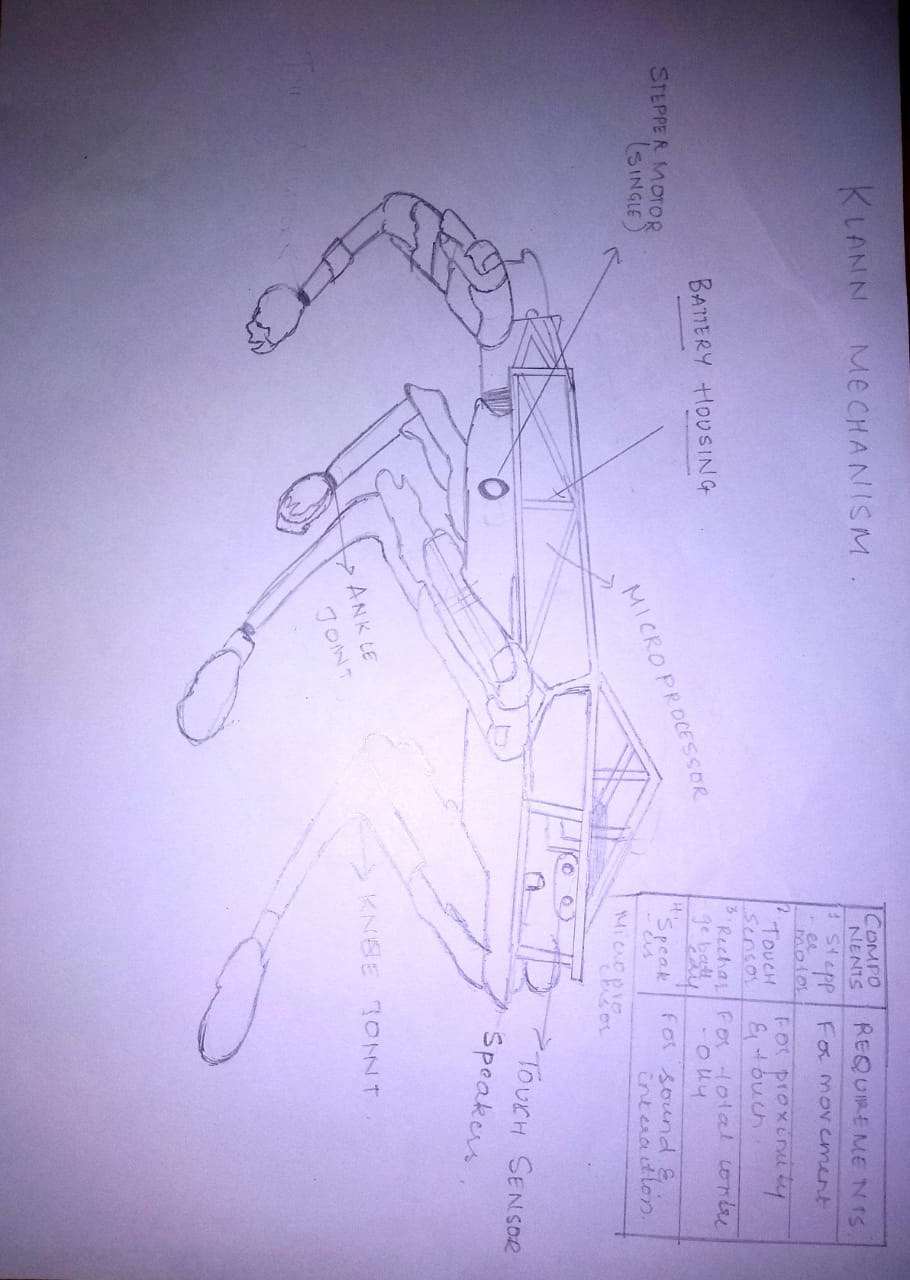 KLANN MECHANISM.
COMPO
NENTS
REQUIREMENTS
1. Stepp
-er
motor
For movement
2. Touch
Sensor
For proximity
& touch.
3. Rechar
ge batt
ery
For total contr
-olly
4. Speak
-ers
For sound &
interaction.
Micropro
cessor
BATTERY HOUSING
MICROPROCESSOR
STEPPER MOTOR
(SINGLE)
TOUCH SENSOR
Speakers.
ANKLE
JOINT
KNEE JOINT.